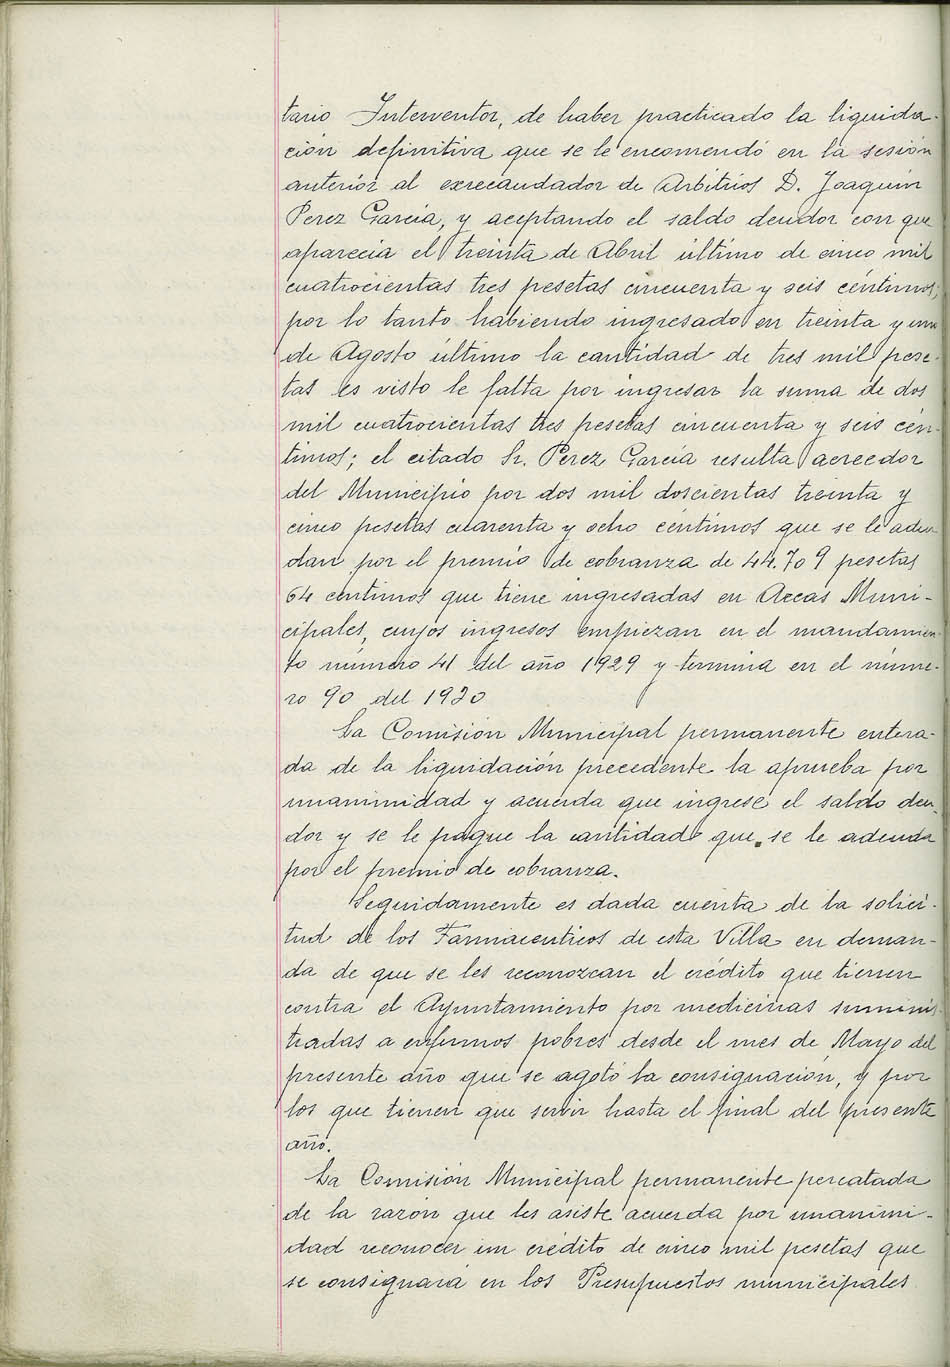 tario Interventor, de haber practicado la liquida-
ción definitiva que se le encomendó en la sesión
anterior al exrecaudador de Arbitrios D. Joaquin
Perez García, y aceptando el saldo deudor con que
aparecia el treinta de Abril último de cinco mil
cuatrocientas tres pesetas cincuenta y seis céntimos,
por lo tanto habiendo ingresado en treinta y uno
de Agosto último la cantidad de tres mil pese-
tas es visto le falta por ingresar la suma de dos
mil cuatrocientas tres pesetas cincuenta y seis cén-
timos; el citado Sr. Perez García resulta acreedor
del Municipio por dos mil doscientas treinta y
cinco pesetas cuarenta y ocho céntimos que se le adeu-
dan por el premio de cobranza de 44.709 pesetas
64 centimos que tiene ingresadas en Arcas Muni-
cipales, cuyos ingresos empiezan en el mandamien-
to número 41 del año 1929 y termina en el núme-
ro 90 del 1930
La Comisión Municipal permanente entera-
da de la liquidación precedente la aprueba por
unanimidad y acuerda que ingrese el saldo deu-
dor y se le pague la cantidad que se le adeuda
por el premio de cobranza.
Seguidamente es dada cuenta de la solici-
tud de los Farmaceuticos de esta Villa en deman-
da de que se les reconozcan el crédito que tienen
contra el Ayuntamiento por medicinas suminis-
tradas a enfermos pobres desde el mes de Mayo del
presente año que se agotó la consignación, y por
los que tienen que servir hasta el final del presente
año.
La Comisión Municipal permanente percatada
de la razón que les asiste acuerda por unanimi-
dad reconocer un crédito de cinco mil pesetas que
se consignará en los Presupuestos municipales